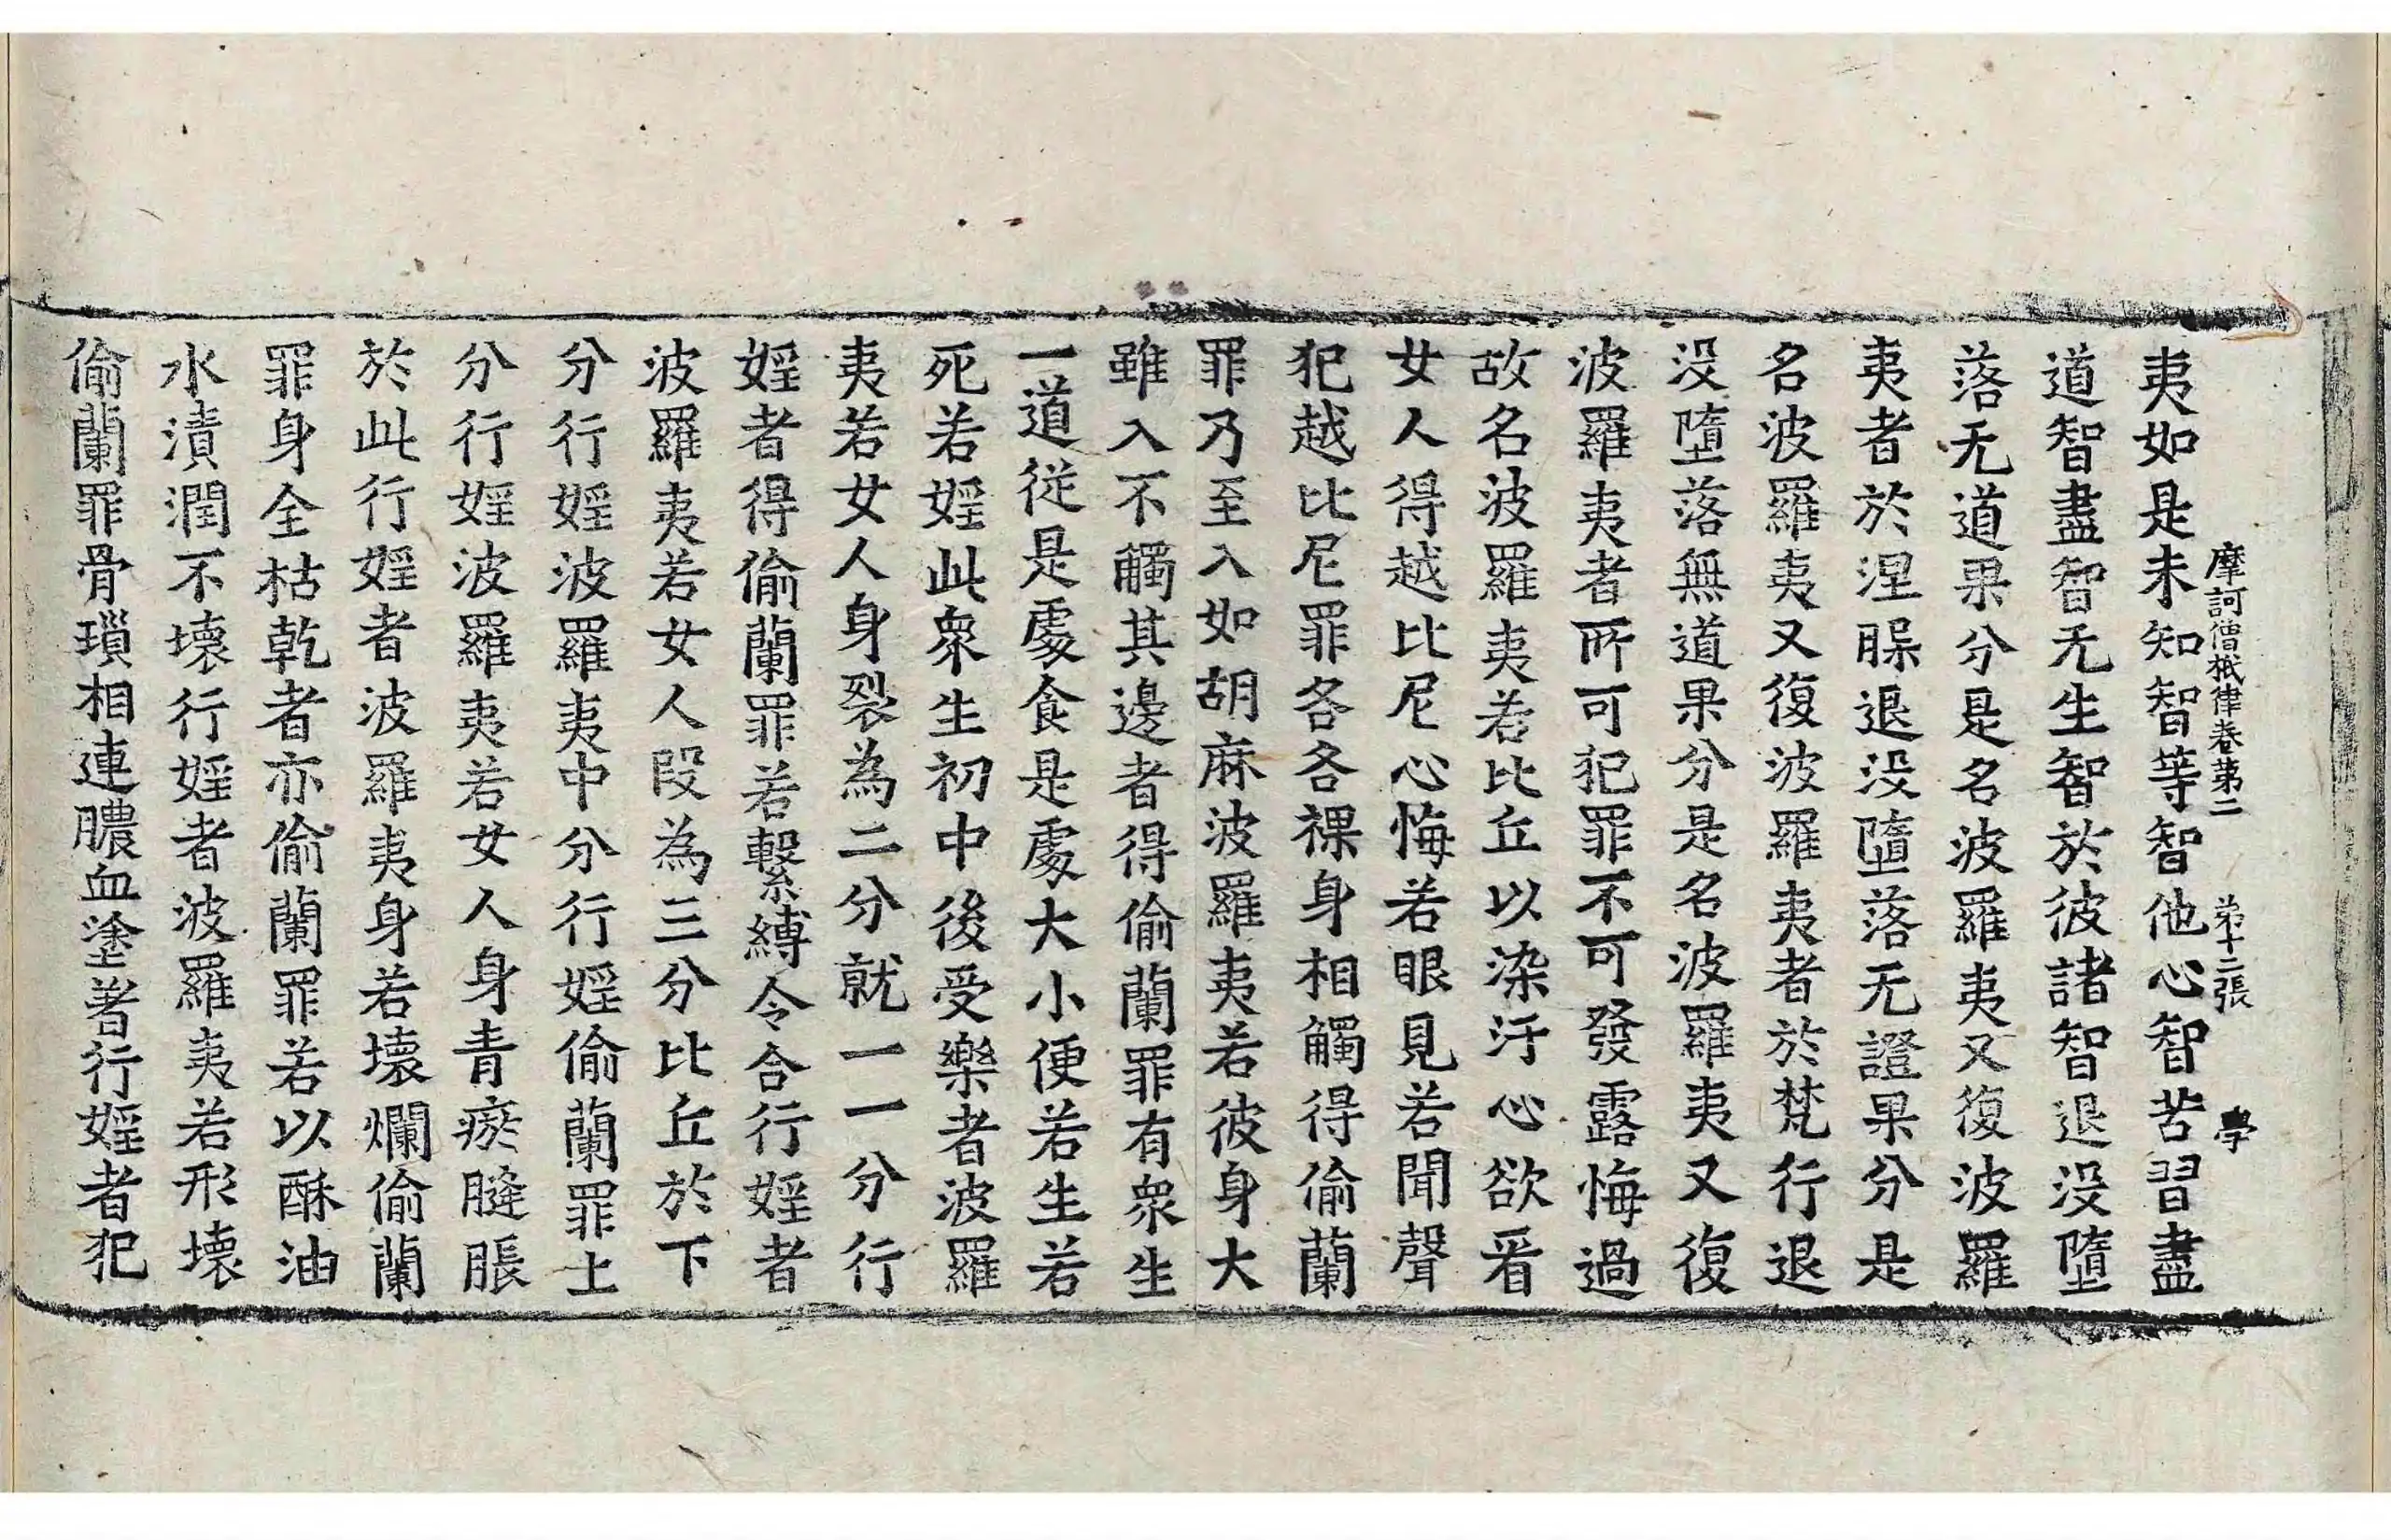 摩訶僧祇律卷第二 第十二張 學
夷如是未知智等智他心智苦習盡
道智盡智无生智於彼諸智退没墮
落无道果分是名波羅夷又復波羅
夷者於涅脲退没墮落无證果分是
名波羅夷又復波羅夷者於梵行退
没墮落無道果分是名波羅夷又復
波羅夷者所可犯罪不可發露悔過
故名波羅夷若比丘以染汙心欲看
女人得越比尼心悔若眼見若聞聲
犯越比尼罪各各裸身相觸得偷蘭
罪乃至入如胡麻波羅夷若彼身大
雖入不觸其邊者得偷蘭罪有衆生
一道従是處食是處大小便若生若
死若婬此衆生初中後受樂者波羅
夷若女人身裂為二分就一一分行
婬者得偷蘭罪若繫縛令合行婬者
波羅夷若女人段為三分比丘於下
分行婬波羅夷中分行婬偷蘭罪上
分行婬波羅夷若女人身青瘀膖脹
於此行婬者波羅夷身若壞爛偷蘭
罪身全枯乾者亦偷蘭罪若以酥油
水漬潤不壞行婬者波羅夷若形壞
偷蘭罪骨瑣相連膿血塗著行婬者犯